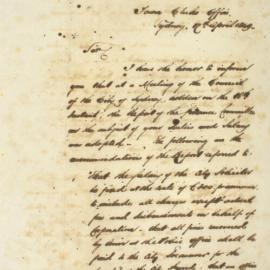 Town Clerks Office,
Sydney, 17th April 1849.
Sir
I have the honor to inform
you that at a Meeting of the Council
of the City of Sydney, holden on the
Instant, the Report of the Finance Committee
on the subject of your Duties and Salary
was adopted. The following are the
recommendations of the Report referred to:
That the Salary of the City Solicitor
be fixed at the rate of £300 per annum
to include all charges except actual
fees and disbursements on behalf of
Corporation. that all fines received
by him at the Police Office shall be
paid to the City Treasurer to the